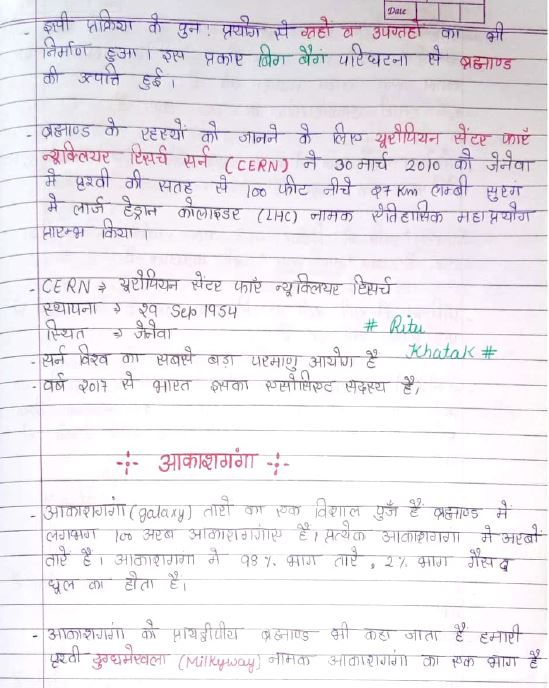 Date
- इसी प्रक्रिया के पुन: प्रयोग से ग्रहों व उपग्रहों का भी
निर्माण हुआ। इस प्रकार बिग बैंग परिघटना से ब्रह्माण्ड
की उत्पत्ति हुई।
- ब्रह्माण्ड के रहस्यों को जानने के लिए यूरोपियन सेंटर फॉर
न्यूक्लियर रिसर्च सर्न (CERN) ने 30 मार्च 2010 को जेनेवा
में पृथ्वी की सतह से 100 फीट नीचे 27 Km लम्बी सुरंग
में लार्ज हेड्रान कोलाइडर (LHC) नामक ऐतिहासिक महाप्रयोग
प्रारम्भ किया।
- CERN → यूरोपियन सेंटर फॉर न्यूक्लियर रिसर्च
स्थापना → 29 Sep 1954
स्थित → जेनेवा
# Ritu
Khatak #
- सर्न विश्व का सबसे बड़ा परमाणु आयोग है
- वर्ष 2017 से भारत इसका एसोसिएट सदस्य है।
आकाशगंगा
- आकाशगंगा (galaxy) तारों का एक विशाल पुँज है ब्रह्माण्ड में
लगभग 100 अरब आकाशगंगाएं है। प्रत्येक आकाशगंगा में अरबों
तारे है। आकाशगंगा में 98% भाग तारे, 2% भाग गैस व
धूल का होता है।
- आकाशगंगा को प्रायद्वीपीय ब्रह्माण्ड भी कहा जाता है हमारी
पृथ्वी दुग्धमेखला (Milkyway) नामक आकाशगंगा का एक भाग है